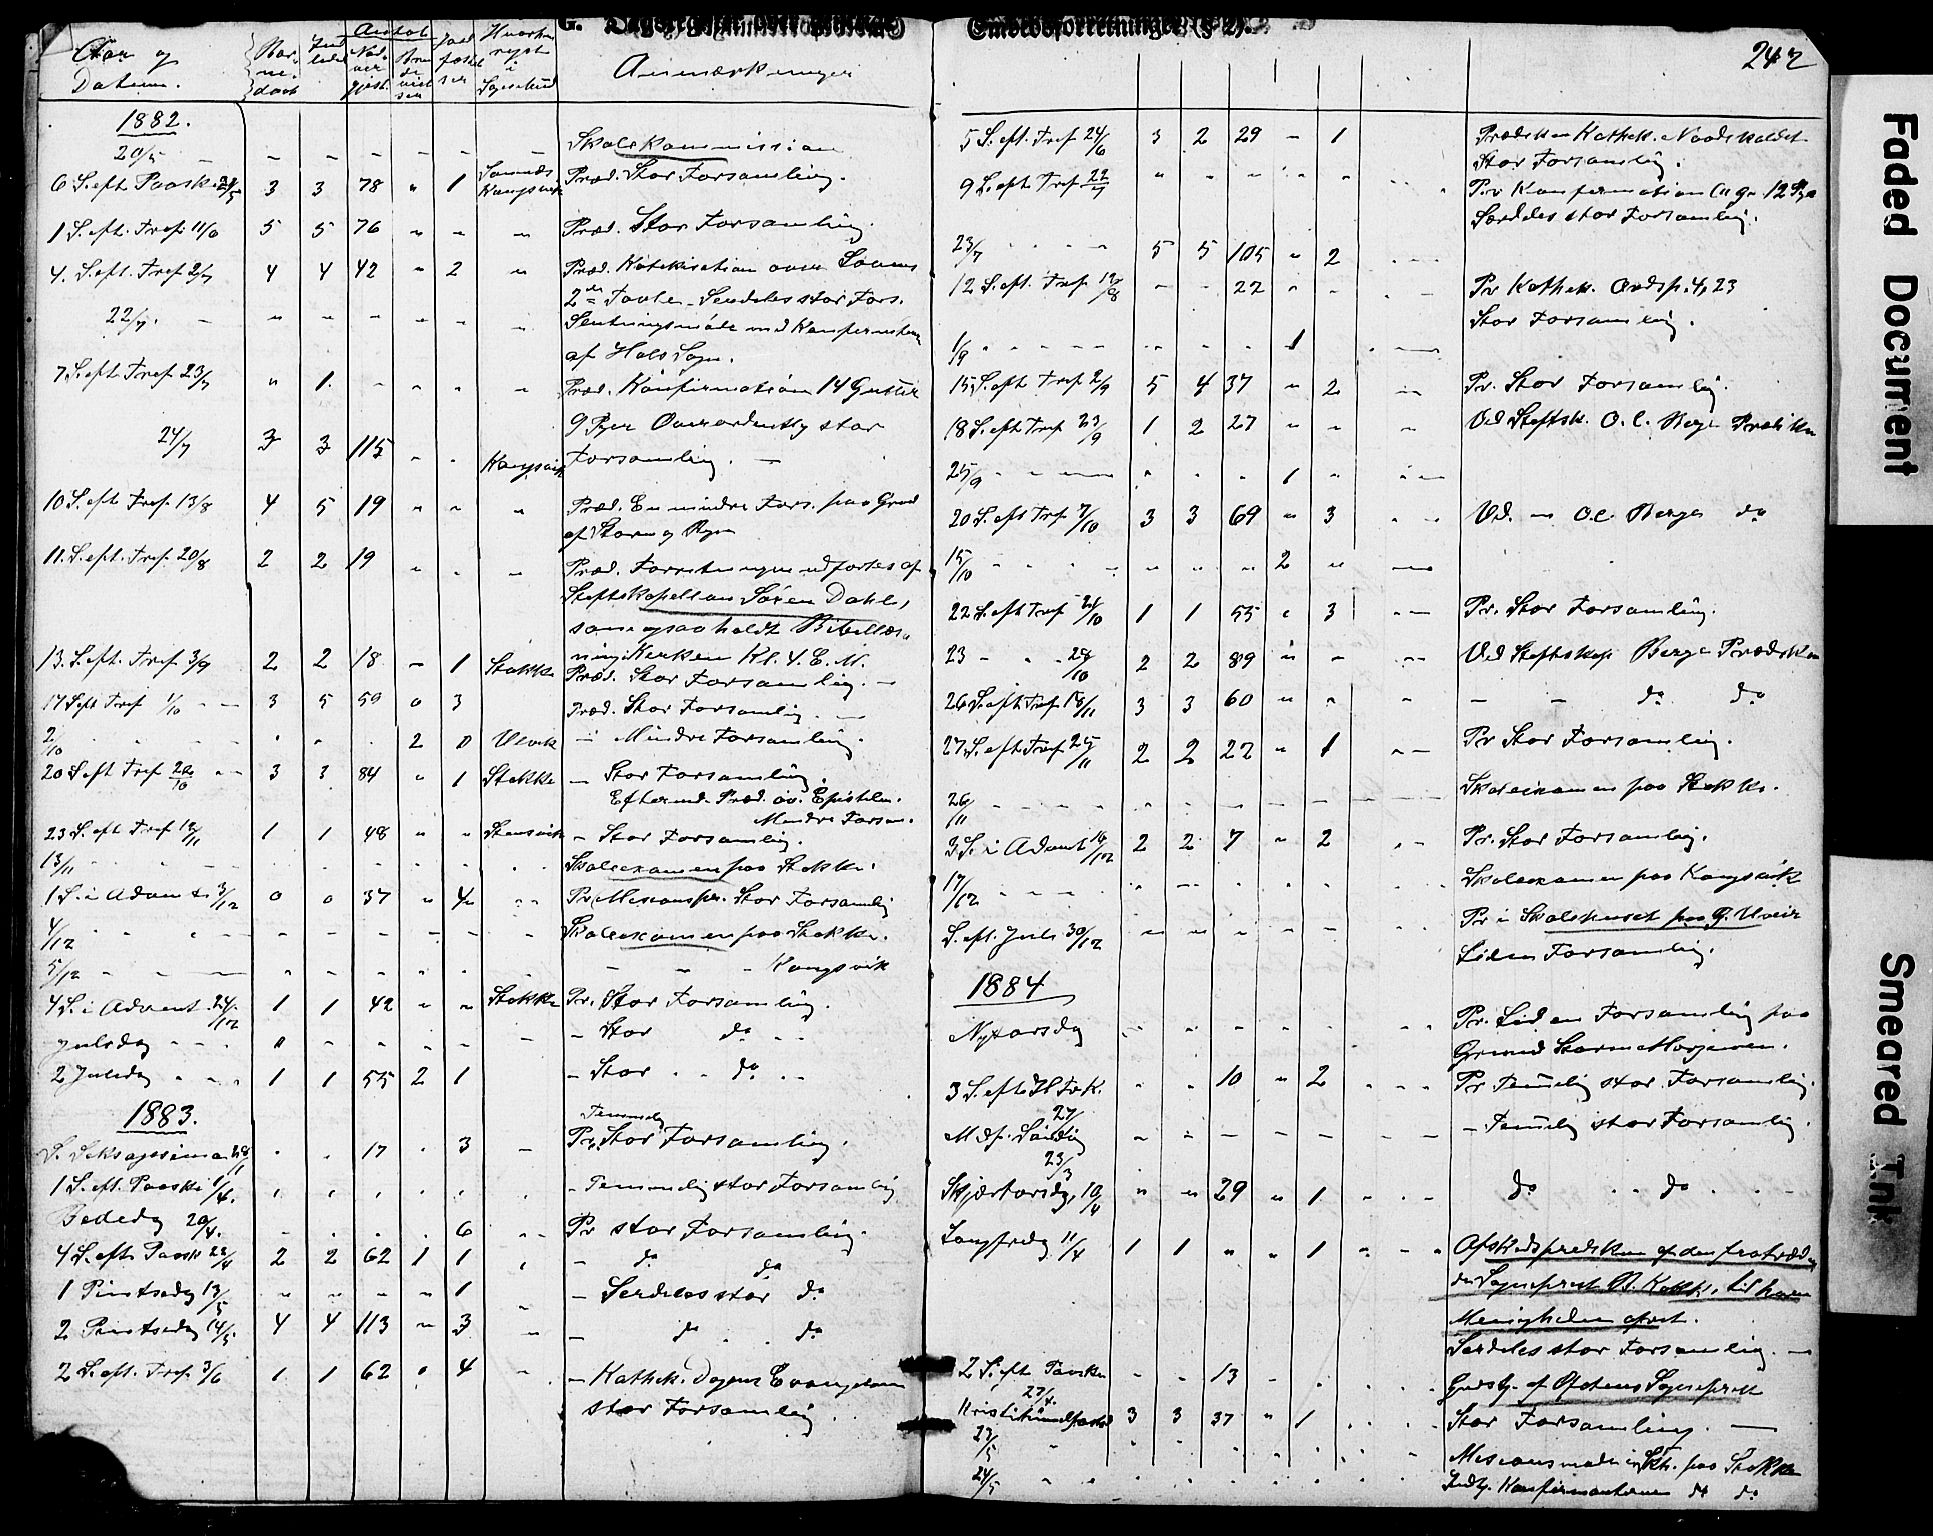 G. Dagsregister over Embedsforretninger (§ 2).
242
Aar og Datum. Barnedaab Indledel Antal Nadvergjest. Jordfæstelser Anmærkninger
1882.
20/5 - - - - - - - Skolekommission
6 S. eft. Paaske 3 3 78 " 1 Kongsvik Præd. Stor Forsamling.
1 S. eft. Tref. 11/6 5 5 76 " - " Præd. Stor Forsamling.
4. S. eft. Tref 2/7 4 4 42 " 2 " Præd. Katekisation over Lovens
2den Tavle - Særdeles stor Fors.
22/7. - " - " - - " Slutningsmøde med Konfirmanterne
af Hols Sogn.
7 S. eft Tref 23/7 " 1. - - - " Præd. Konfirmation 14 Gutter
9 Pger Overordentlig stor
24/7 3 3 115 - - Kongsvik Forsamling. -
10 S. eft Tref. 13/8 4 5 19 " " " Præd. En mindre Fors. paa Grund
af Storm og Regn
11. S. eft. Tref. 20/8 2 2 19 " . " Præd. Forretningen udførtes af
Stiftskapellan Søren Dahl,
som ogsaa holdt Bibellæs-
ning i Kirken Kl. 4 E. M.
13. S. eft. Tref 3/9 2 2 18 - 1 Stokke Præd. Stor Forsamling. -
17 S eft Tref 1/10 - - 3 5 59 0 3 Præd. Stor Forsamling. -
2/10 2 0 Ulvik - Mindre Forsamling.
20 S eft Tref 22/10 - - 3 3 84 " 1 Stokke - Stor Forsamling.
Efterm. Præd. ov. Epistelen.
Mindre Forsam.
23 S. eft Tref 12/11 1 1 48 " " - Stor Forsamling.
13/11 Skoleexamen paa Stokke.
1 S. i Advent 3/12 0 0 37 " 4 - - Pr. Missionspr. Stor Forsamling
4/12 - - - - - - - Skoleexamen paa Stokke.
5/12 - - - - - - - " - Kongsvik
4 S. i Advent 24/12 1 1 42 " " Stokke Pr. Stor Forsamling.
Juledag - - - - Stor do
2 Juledag 1 1 55 2 1 - Stor . . do . .
1883.
S. Seksagesima 28/1 . . 17 . 3 - Temmelig Pr. Stor Forsamling.
1 S. eft. Paaske 1/4. - Temmelig stor Forsamling
Bededag 20/4. 6 Pr stor Forsamling.
4 S. eft Paask 22/4 2 2 62 1 1 - do do
1 Pintsedag 13/5 " " " " 1 " - Særdeles stor do
2 Pintsedag 14/5. 4 4 113 " 3 " - do . do
2 S. eft. Tref. 3/6 1 1 62 0 4 " - Kathek. Dagens Evangelium
stor Forsamling.
5 S. eft. Tref 24/6 3 2 29 - 1 Prædiken Kathek. Naadestoldet
Stor Forsamling.
9 S. eft Tref 22/7 Pr Konfirmation 12 Pger
Særdeles stor Forsamling.
23/7 5 5 105 " 2
12 S. eft. Tref 12/8 - - 22 " " Pr Kathek. Ordsp. 4, 23
Stor Forsamling.
1/9 1
15 S. eft Tref 2/9 5 4 37 " 2 Pr. Stor Forsamling.
18 S. eft Tref 23/9 1 2 27 " " Ved Stiftsk. O. C. Berge Prædiken
25/9 1 "
20 S. eft Tref 7/10 3 3 69 " 3 Ved. - O.C. Berge do
15/10 2 "
22 S. eft Tref 21/10 1 1 55 " 3 Pr. Stor Forsamling.
23 - " . 28/10 2 2 89 " - Ved Stiftskap Berge Prædiken
26 S. eft Tref. 18/11 3 3 60 " " - - do do
27 S. eft Tref 25/11 2 2 22 " 1 Pr Stor Forsamling.
26/11 - - - - - - - Skoleexamen paa Stokke.
3 S. i Advent 16/12 2 2 7 " 2 Pr. Stor Forsamling.
17/12 - - - Skoleexamen paa Kongsvik
S. eft. Jul 30/12 Pr i Skolehuset paa
Liden Forsamling.
1884
Nytaarsdag Pr. Liden Forsamling paa
Grund Storm
3 S. eft H 3 K. 27/1 . . 10 " 2 Pr Temmelig stor Forsamling.
M df. Søndag 23/3 - - - - - - Temmelig stor Forsamling.
Skjærtorsdag, 10/4 " " 29 " 1 do . . do
Langfredag 11/4 1 1 " " 1 Afskedsprediken af den fratræden-
de Sogneprest B. Kokk, til
Menigheden
Særdeles stor Forsamling. -
2 S. eft Paaske 27/4 - - 13 - Gudstj. af Ofotens Sogneprest
Kristi Himmelfartsd 3 3 37 " 1 Stor Forsamling. -
23/5 Missionsmøde paa Stokke
24/5 Konfirmanterne do do
Faded Document
Smeared Ink